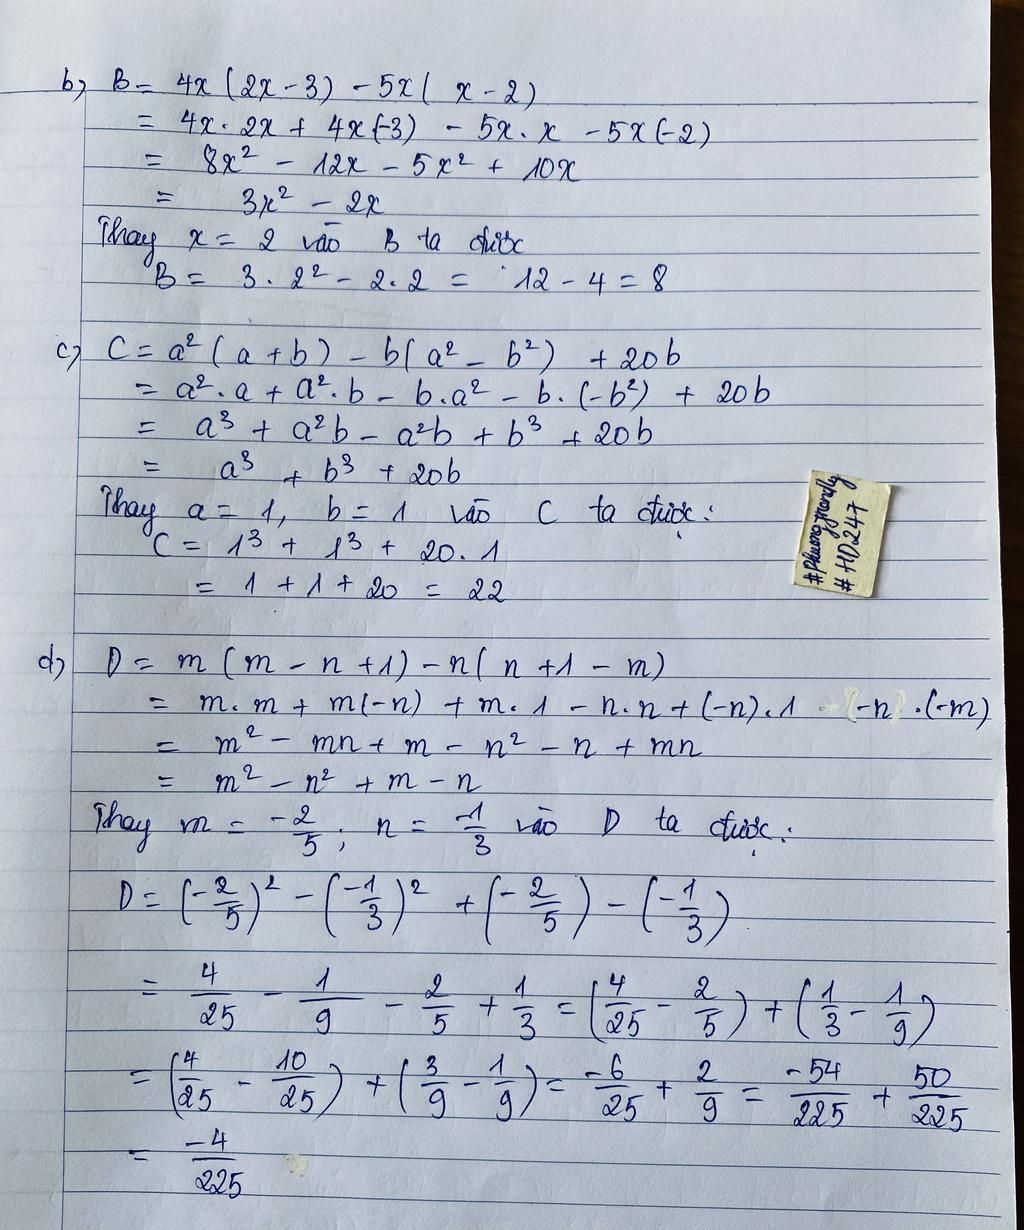 b) B = 4x (2x - 3) - 5x ( x - 2)
= 4x . 2x + 4x (-3) - 5x . x - 5x (-2)
= 8x² - 12x - 5x² + 10x
= 3x² - 2x
Thay x = 2 vào B ta được
B = 3 . 2² - 2 . 2 = 12 - 4 = 8
c) C = a² ( a + b ) - b( a² - b² ) + 20b
= a² . a + a² . b - b . a² - b . (-b²) + 20b
= a³ + a²b - a²b + b³ + 20b
= a³ + b³ + 20b
Thay a = 1, b = 1 vào C ta được :
C = 1³ + 1³ + 20 . 1
= 1 + 1 + 20 = 22
#
# HD247
d) D = m ( m - n + 1) - n( n + 1 - m)
= m . m + m(-n) + m . 1 - n . n + (-n) . 1 - (-n) . (-m)
= m² - mn + m - n² - n + mn
= m² - n² + m - n
Thay m = -2/5 ; n = -1/3 vào D ta được :
D = (-2/5)² - (-1/3)² + (-2/5) - (-1/3)
= 4/25 - 1/9 - 2/5 + 1/3 = (4/25 - 2/5) + (1/3 - 1/9)
= (4/25 - 10/25) + (3/9 - 1/9) = -6/25 + 2/9 = -54/225 + 50/225
= -4/225